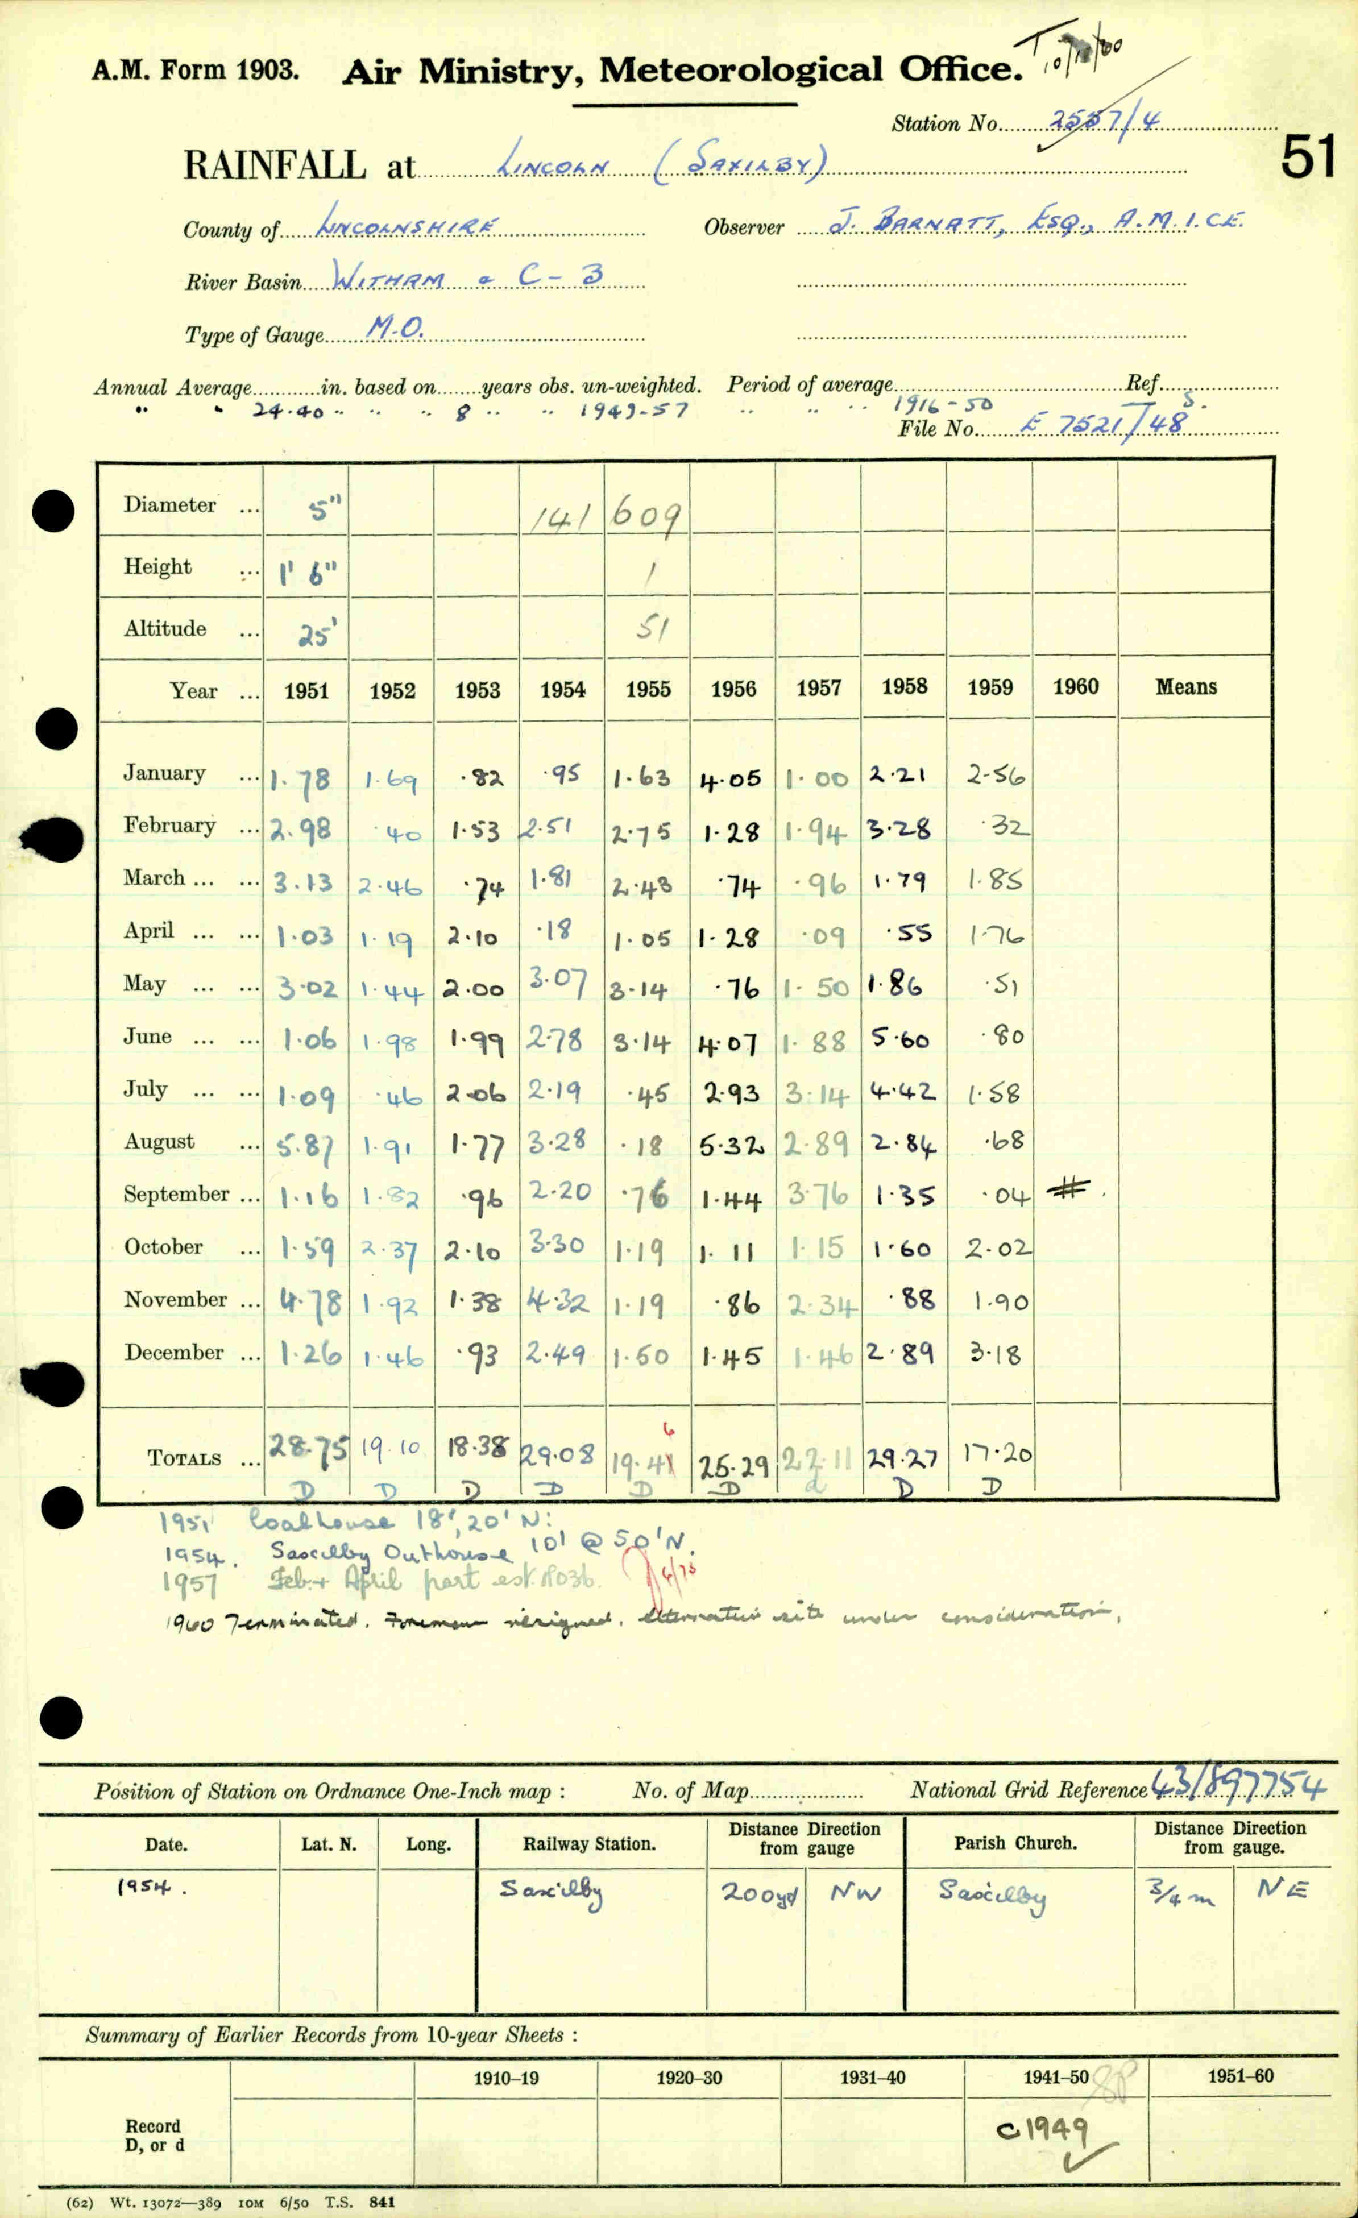 A.M. Form 1903. Air Ministry, Meteorological Office. T 10/11/60
Station No. 2557/4
51
RAINFALL at LINCOLN (SAXILBY)
County of LINCOLNSHIRE Observer J. BARNATT, ESQ., A.M.I.C.E.
River Basin WITHAM C-3
Type of Gauge M.O.
Annual Average in. based on years obs. un-weighted. Period of average Ref.
" " 24.40 " " " 8 " " 1949-57 " " " 1916-50 S.
File No. E 7521/48
Diameter ... 5" 141 609
Height ... 1' 6" 1
Altitude ... 25' 51
Year ... 1951 1952 1953 1954 1955 1956 1957 1958 1959 1960 Means
January ... 1.78 1.69 .82 .95 1.63 4.05 1.00 2.21 2.56
February ... 2.98 .40 1.53 2.51 2.75 1.28 1.94 3.28 .32
March ... ... 3.13 2.46 .74 1.81 2.43 .74 .96 1.79 1.85
April ... ... 1.03 1.19 2.10 .18 1.05 1.28 .09 .55 1.76
May ... ... 3.02 1.44 2.00 3.07 3.14 .76 1.50 1.86 .51
June ... ... 1.06 1.98 1.99 2.78 3.14 4.07 1.88 5.60 .80
July ... ... 1.09 .46 2.06 2.19 .45 2.93 3.14 4.42 1.58
August ... 5.87 1.91 1.77 3.28 .18 5.32 2.89 2.84 .68
September ... 1.16 1.82 .96 2.20 .76 1.44 3.76 1.35 .04 #.
October ... 1.59 2.37 2.10 3.30 1.19 1.11 1.15 1.60 2.02
November ... 4.78 1.92 1.38 4.32 1.19 .86 2.34 .88 1.90
December ... 1.26 1.46 .93 2.49 1.50 1.45 1.46 2.89 3.18
6
TOTALS ... 28.75 19.10 18.38 29.08 19.41 25.29 22.11 29.27 17.20
D D D D D D d D D
1951 Coalhouse 18', 20' N:
1954. Saxilby Outhouse 10' @ 50'N.
1957 Feb + April part est. 4/75
1960 Terminated. Foreman resigned. alternative site under consideration.
Position of Station on Ordnance One-Inch map : No. of Map National Grid Reference 43/897754
Date. Lat. N. Long. Railway Station. Distance from Direction gauge Parish Church. Distance from Direction gauge.
1954. Saxilby 200yd NW Saxilby 3/4 m NE
Summary of Earlier Records from 10-year Sheets :
1910–19 1920–30 1931–40 1941–50 8P 1951–60
Record
D, or d
c1949
(62) Wt. 13072—389 10M 6/50 T.S. 841